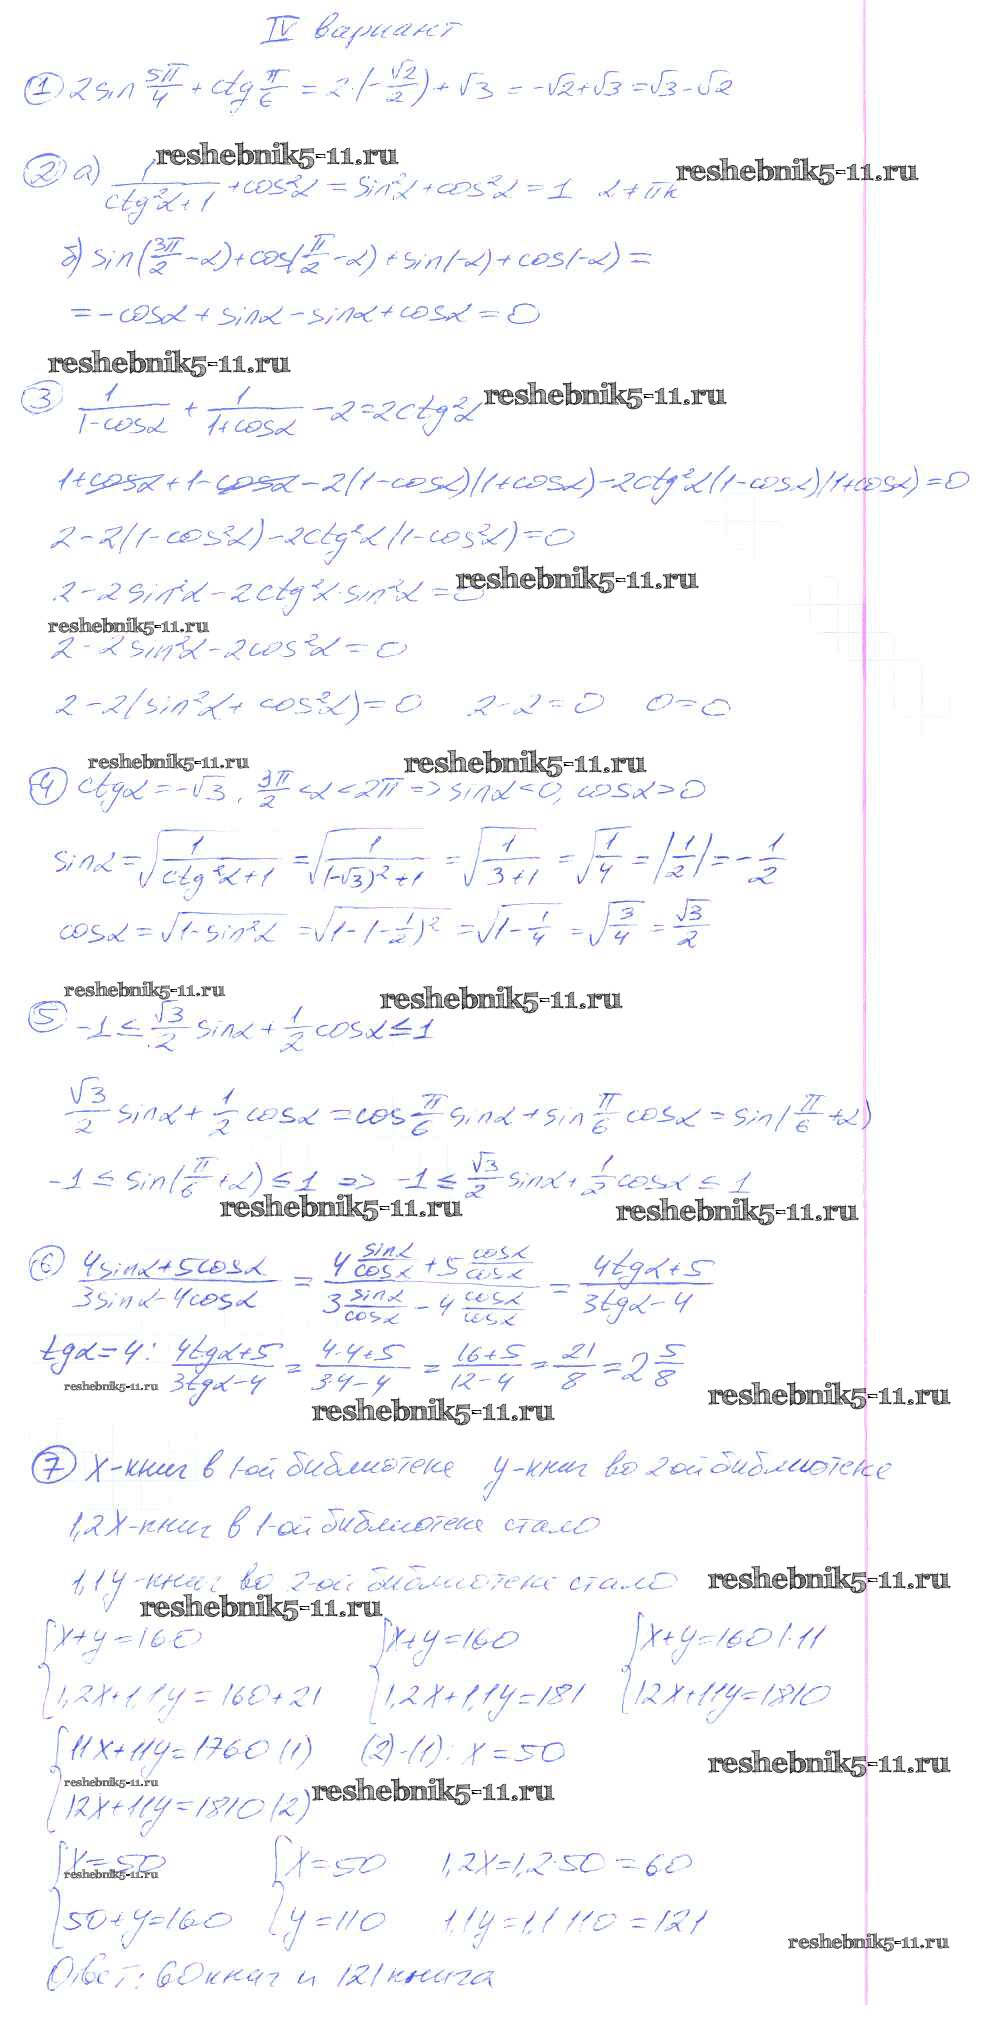 IV вариант
① 2sin 5π/4 + ctg π/6 = 2·(-√2/2) + √3 = -√2+√3 = √3-√2
reshebnik5-11.ru
reshebnik5-11.ru
② а) 1/(ctg²α+1) + cos²α = sin²α + cos²α = 1 α ≠ πk
б) sin(3π/2 -α)+cos(π/2 -α)+sin(-α)+cos(-α) =
= -cosα + sinα - sinα + cosα = 0
reshebnik5-11.ru
reshebnik5-11.ru
③ 1/(1-cosα) + 1/(1+cosα) - 2 = 2ctg²α
1+cosα+1-cosα-2(1-cosα)(1+cosα)-2ctg²α(1-cosα)(1+cosα)=0
2-2(1-cos²α)-2ctg²α(1-cos²α)=0
reshebnik5-11.ru
2-2sin²α-2ctg²α·sin²α=0
reshebnik5-11.ru
2-2sin²α-2cos²α=0
2-2(sin²α+cos²α)=0 2-2=0 0=0
reshebnik5-11.ru
reshebnik5-11.ru
④ ctgα=-√3, 3π/2<α<2π => sinα<0, cosα>0
sinα=√(1/(ctg²α+1)) = √(1/((-√3)²+1)) = √(1/(3+1)) = √(1/4) = |1/2| = -1/2
cosα=√(1-sin²α) = √(1-(-1/2)²) = √(1-1/4) = √(3/4) = √3/2
reshebnik5-11.ru
reshebnik5-11.ru
⑤ -1 ≤ √3/2 sinα + 1/2 cosα ≤ 1
√3/2 sinα + 1/2 cosα = cos π/6 sinα + sin π/6 cosα = sin(π/6 +α)
-1 ≤ sin(π/6 +α) ≤ 1 => -1 ≤ √3/2 sinα + 1/2 cosα ≤ 1
reshebnik5-11.ru
reshebnik5-11.ru
⑥ (4sinα+5cosα)/(3sinα-4cosα) = (4 sinα/cosα + 5 cosα/cosα)/(3 sinα/cosα - 4 cosα/cosα) = (4tgα+5)/(3tgα-4)
tgα=4: (4tgα+5)/(3tgα-4) = (4·4+5)/(3·4-4) = (16+5)/(12-4) = 21/8 = 2 5/8
reshebnik5-11.ru
reshebnik5-11.ru
reshebnik5-11.ru
⑦ x-книг в 1-ой библиотеке y-книг во 2ой библиотеке
1,2x-книг в 1-ой библиотеке стало
1,1y-книг во 2-ой библиотеке стало
reshebnik5-11.ru
reshebnik5-11.ru
{x+y=160 {x+y=160 {x+y=160 |·11
{1,2x+1,1y=160+21 {1,2x+1,1y=181 {12x+11y=1810
{11x+11y=1760 (1) (2)-(1): x=50
reshebnik5-11.ru
reshebnik5-11.ru
reshebnik5-11.ru
{12x+11y=1810 (2)
{x=50 {x=50 1,2x=1,2·50=60
reshebnik5-11.ru
{50+y=160 {y=110 1,1y=1,1·110=121
reshebnik5-11.ru
Ответ: 60 книг и 121 книга